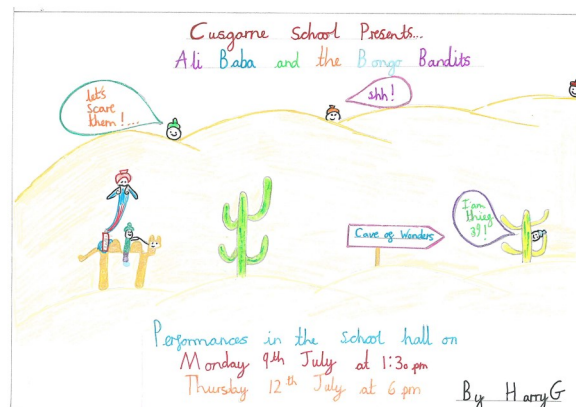 Cusgarne School Presents...
Ali Baba and the Bongo Bandits
let's
scare
them!...
shh!
I am
thief
39!
Cave of Wonders
Performances in the school hall on
Monday 9th July at 1:30 pm
Thursday 12th July at 6 pm
By Harry G